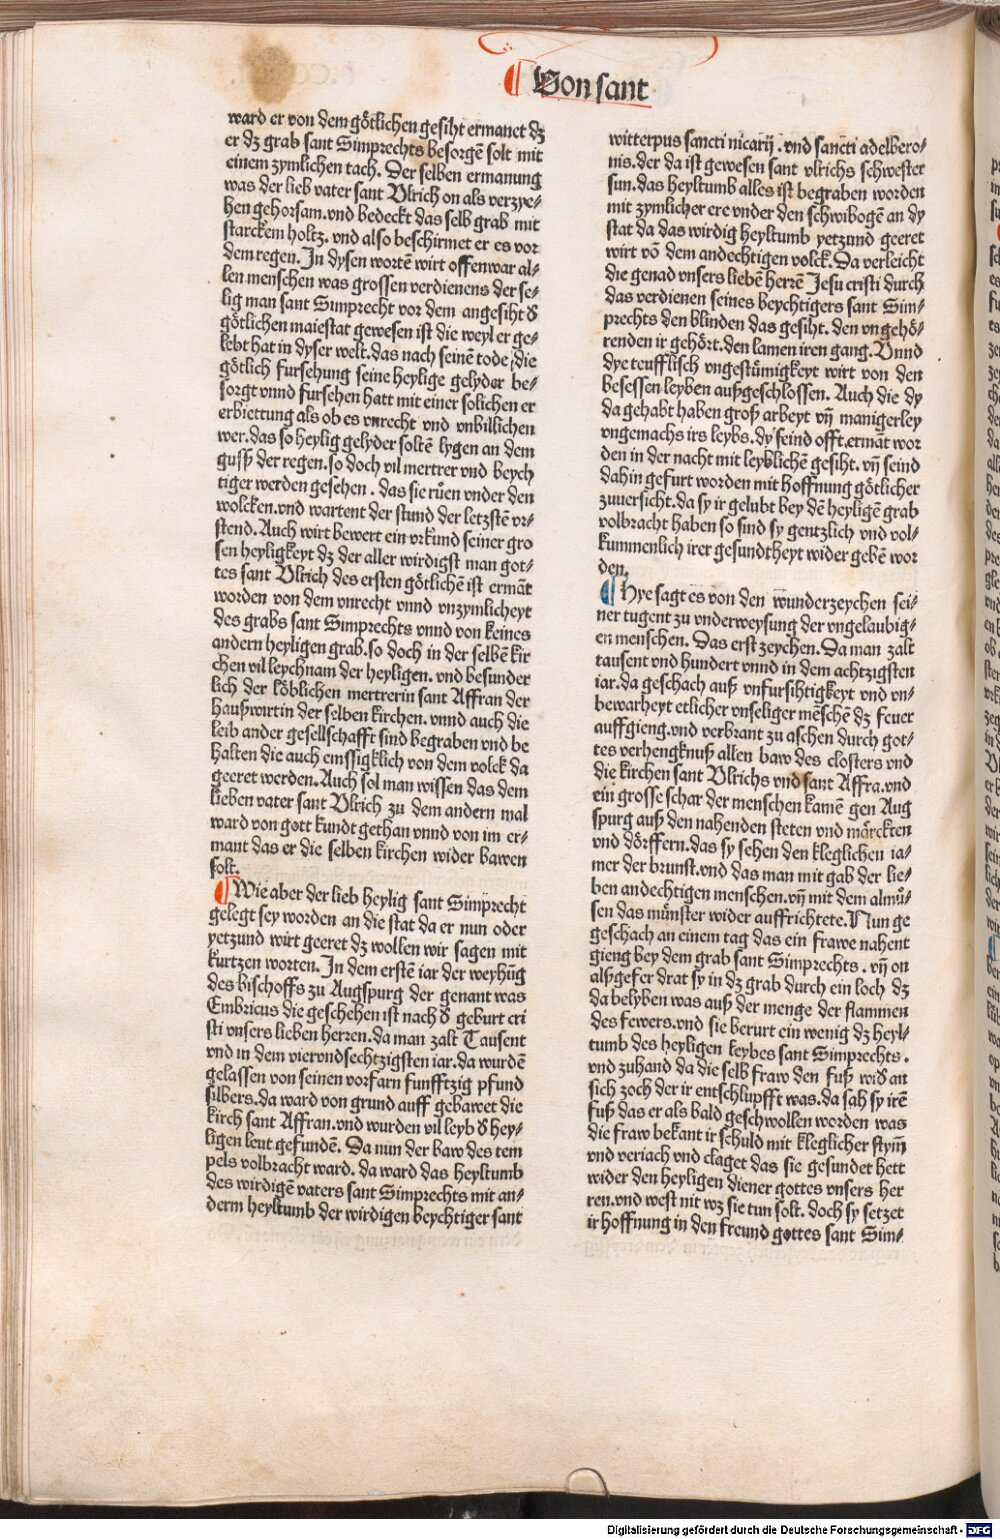 Von sant
ward er von dem gőtlichen gesiht ermanet dz
er dz grab sant Simprechts besorgẽ solt mit
einem zymlichen tach. Der selben ermanung
was der lieb vater sant Vlrich on als verzye⸗
hen gehorsam. vnd bedeckt das selb grab mit
starckem holtz. vnd also beschirmet er es vor
dem regen. In dysen wortẽ wirt offenwar al⸗
len menschen was grossen verdienens der se⸗
lig man sant Simprecht vor dem angesiht d̕
gőtlichen maiestat gewesen ist die weyl er ge⸗
lebt hat in dyser welt. das nach seinẽ tode die
gőtlich fursehung seine heylige gelyder be⸗
sorgt vnnd fursehen hatt mit einer solichen er
erbiettung als ob es vnrecht vnd vnbillichen
wer. das so heylig gelyder soltẽ lygen an dem
gusß der regen. so doch vil mertrer vnd beych
tiger werden gesehen. das sie růen vnder den
wolcken. vnd wartent der stund der letzstẽ vr⸗
stend. Auch wirt bewert ein vrkund seiner gro
sen heyligkeyt dz der aller wirdigst man got⸗
tes sant Vlrich des ersten gőtlichẽ ist ermãt
worden von dem vnrecht vnnd vnzymlicheyt
des grabs sant Simprechts vnnd von keines
andern heyligen grab. so doch in der selbẽ kir
chen vil leychnam der heyligen. vnd besunder
lich der lőblichen mertrerin sant Affran der
haußwirtin der selben kirchen. vnnd auch die
leib ander gesellschafft sind begraben vnd be
halten die auch emssigklich von dem volck da
geeret werden. Auch sol man wissen das dem
lieben vater sant Vlrich zu dem andern mal
ward von gott kundt gethan vnnd von im er⸗
mant das er die selben kirchen wider bawen
solt.
Wie aber der lieb heylig sant Simprecht
gelegt sey worden an die stat da er nun oder
yetzund wirt geeret dz wollen wir sagen mit
kurtzen worten. In dem erstẽ iar der weyhũg
des bischoffs zu Augspurg der genant was
Embricus die geschehen ist nach d̕ geburt cri
sti vnsers lieben herren. da man zalt Tausent
vnd in dem viervndsechtzigsten iar. da wurdẽ
gelassen von seinen vorfarn funfftzig pfund
silbers. da ward von grund auff gebawet die
kirch sant Affran. vnd wurden vil leyb d̕ hey⸗
ligen leut gefundẽ. Da nun der baw des tem
pels volbracht ward. da ward das heyltumb
des wirdigẽ vaters sant Simprechts mit an⸗
derm heyltumb der wirdigen beychtiger sant
witterpus sancti nicarij. vnd sancti adelbero⸗
nis. der da ist gewesen sant vlrichs schwester
sun. das heyltumb alles ist begraben worden
mit zymlicher ere vnder den schwibogẽ an dy
stat da das wirdig heyltumb yetzund geeret
wirt võ dem andechtigen volck. Da verleicht
die genad vnsers liebẽ herrẽ Jesu cristi durch
das verdienen seines beychtigers sant Sim⸗
prechts den blinden das gesiht. den vngehő⸗
renden ir gehőrt. den lamen iren gang. Vnnd
dye teufflisch vngestůmigkeyt wirt von den
besessen leyben außgeschlossen. Auch die dy
da gehabt haben groß arbeyt vñ manigerley
vngemachs irs leybs. dy seind offt ermãt wor
den in der nacht mit leyblichẽ gesiht. vñ seind
dahin gefurt worden mit hoffnung gőtlicher
zuuersicht. da sy ir gelubt bey dẽ heyligẽ grab
volbracht haben so sind sy gentzlich vnd vol⸗
kummenlich irer gesundtheyt wider gebẽ wor
den.
Hye sagt es von den wunderzeychen sei⸗
ner tugent zu vnderweysung der vngelaubig⸗
en menschen. Das erst zeychen. Da man zalt
tausent vnd hundert vnnd in dem achtzigsten
iar. da geschach auß vnfursihtigkeyt vnd vn⸗
bewarheyt etlicher vnseliger mẽschẽ dz feuer
auffgieng. vnd verbrant zu aschen durch got⸗
tes verhengknuß allen baw des closters vnd
die kirchen sant Vlrichs vnd sant Affra. vnd
ein grosse schar der menschen kamẽ gen Aug
spurg auß den nahenden steten vnd mårckten
vnd dőrffern. das sy sehen den kleglichen ia⸗
mer der brunst. vnd das man mit gab der lie⸗
ben andechtigen menschen. vñ mit dem almů⸗
sen das můnster wider auffrichtete. Nun ge
geschach an einem tag das ein frawe nahent
gieng bey dem grab sant Simprechts. vñ on
alßgefer drat sy in dz grab durch ein loch dz
da belyben was auß der menge der flammen
des fewers. vnd sie berurt ein wenig dz heyl⸗
tumb des heyligen keybes sant Simprechts.
vnd zuhand da die selb fraw den fuß wid̕ an
sich zoch der ir entschlupfft was. da sah sy irẽ
fuß das er als bald geschwollen worden was
die fraw bekant ir schuld mit kleglicher stym̃
vnd veriach vnd claget das sie gesundet hett
wider den heyligen diener gottes vnsers her
ren. vnd west nit wz sie tun solt. doch sy setzet
ir hoffnung in den freund gottes sant Sim⸗
Digitalisierung gefördert durch die Deutsche Forschungsgemeinschaft - DFG